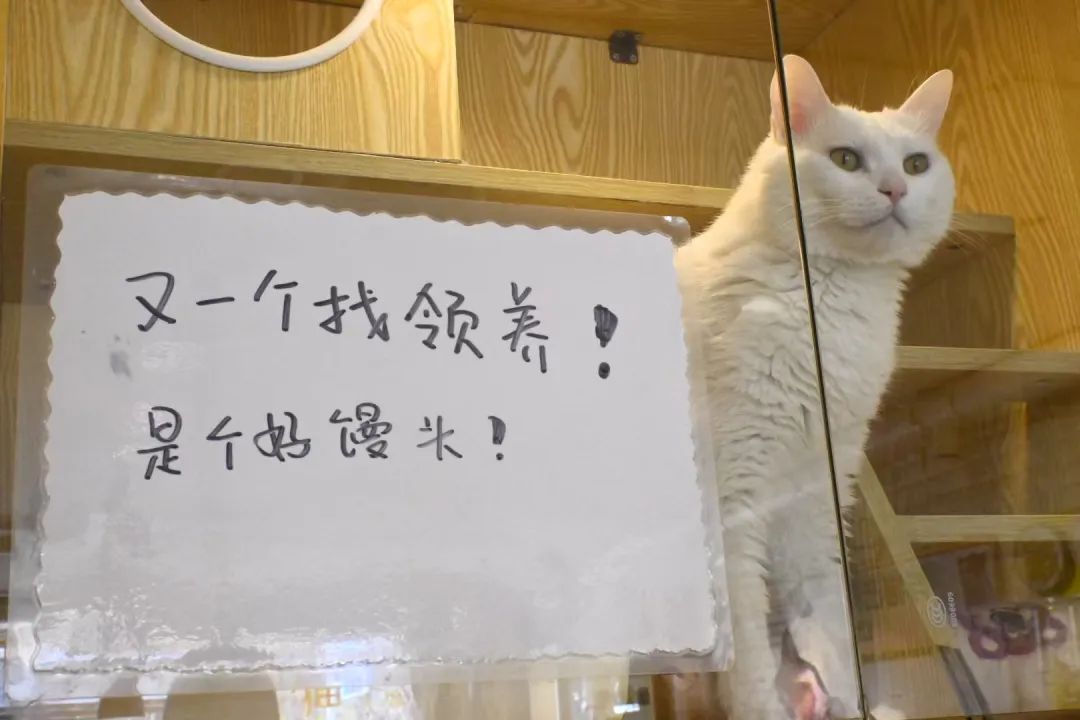 又一个找领养！
是个好馒头！